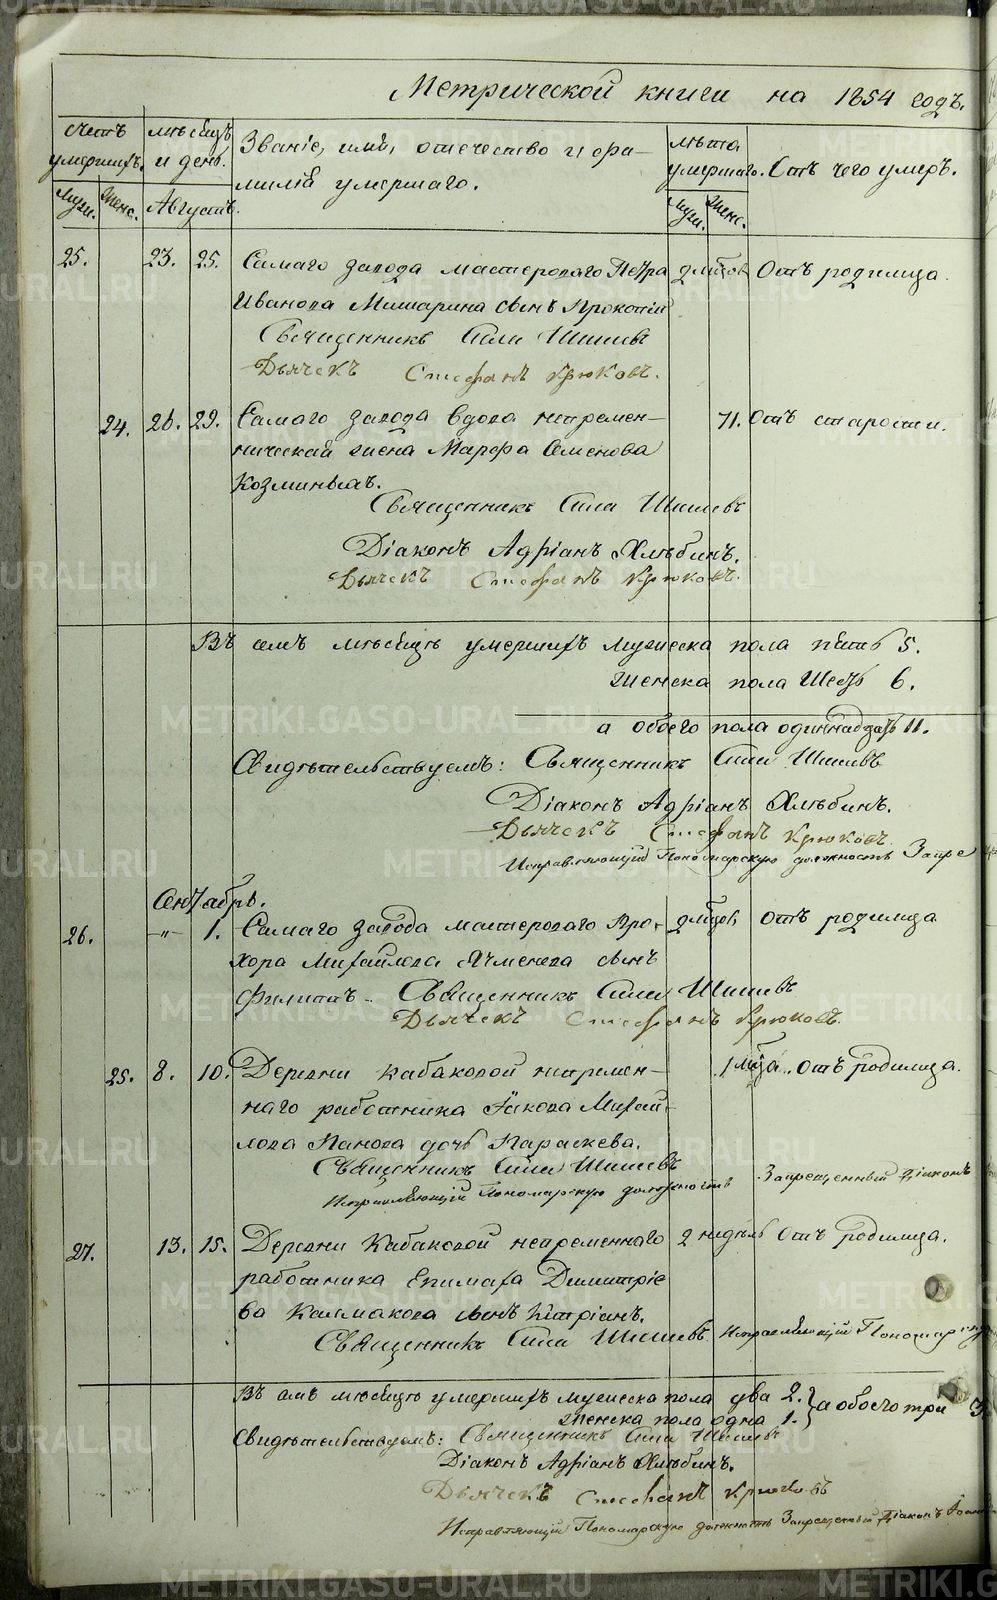 Метрической книги на 1854 годъ.
Счетъ умершихъ.
мѣсяцъ и день.
Званіе, имя, отечество и фамилія умершаго.
лѣта умершаго.
Отъ чего умеръ.
Муж. Женс. Августъ. Муж. Женс.
25. 23. 25. Самаго завода мастероваго Петра 2 мѣсцов Отъ родимца.
Иванова Мишарина сынъ Прокопій
Священникъ Сила Шишевъ
Дьячекъ Стефанъ Крюковъ.
24. 26. 29. Самаго завода вдова непремен- 71. Отъ старости.
ническая жена Марфа Семенова
Козминыхъ.
Священникъ Сила Шишевъ
Діаконъ Адріанъ Хлѣбинъ.
Дьячекъ Стефанъ Крюковъ.
Въ семъ мѣсяцѣ умершихъ мужеска пола пять 5.
женска пола шесть 6.
а обоего пола одиннадцать 11.
Свидѣтельствуемъ: Священникъ Сила Шишевъ
Діаконъ Адріанъ Хлѣбинъ.
Дьячекъ Стефанъ Крюковъ
Исправляющій Пономарскую должность Запре
Сентябрь.
26. -"- 1. Самаго завода мастероваго Про- 2 мѣсцов отъ родимца
хора Михайлова Ячменева сынъ
Филипъ. Священникъ Сила Шишевъ
Дьячекъ Стефанъ Крюковъ.
25. 8. 10. Деревни Кабаковой непремен- 1 мѣсца. Отъ родимца.
наго работника Іакова Михай-
лова Панова дочь Параскева.
Священникъ Сила Шишевъ
Исправляющій Пономарскую должность Запрещенный Діаконъ
27. 13. 15. Деревни Кабаковой непременнаго 2 недѣль Отъ родимца.
работника Епимаха Димитріе
ва Калмакова сынъ Кипріанъ.
Священникъ Сила Шишевъ Исправляющій Пономарскую
Въ семъ мѣсяцѣ умершихъ мужеска пола два 2. } а обоего три 3.
женска пола одна 1.
Свидѣтельствуемъ: Священникъ Сила Шишевъ
Діаконъ Адріанъ Хлѣбинъ.
Дьячекъ Стефанъ Крюковъ
Исправляющій Пономарскую должность Запрещенный Діаконъ
METRIKI.GASO-URAL.RU